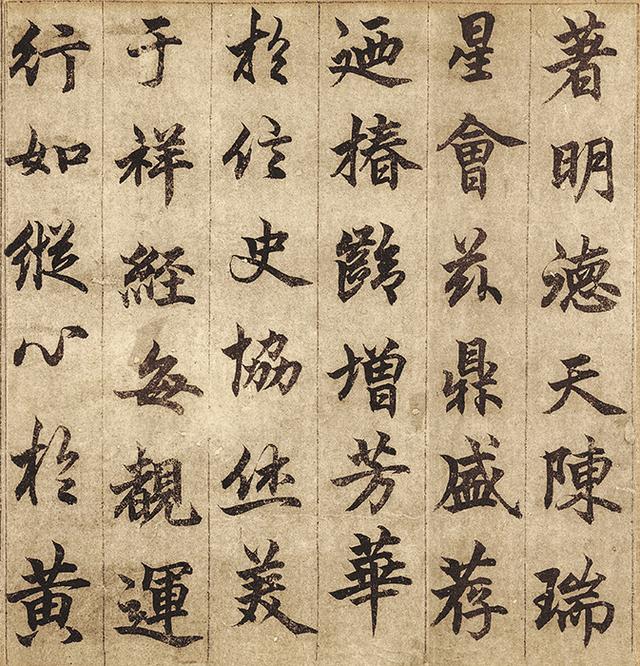 著明德天陳瑞
星會茲鼎盛荐
迺椿齡增芳華
於信史協休美
于祥經每觀運
行如縱心於黃